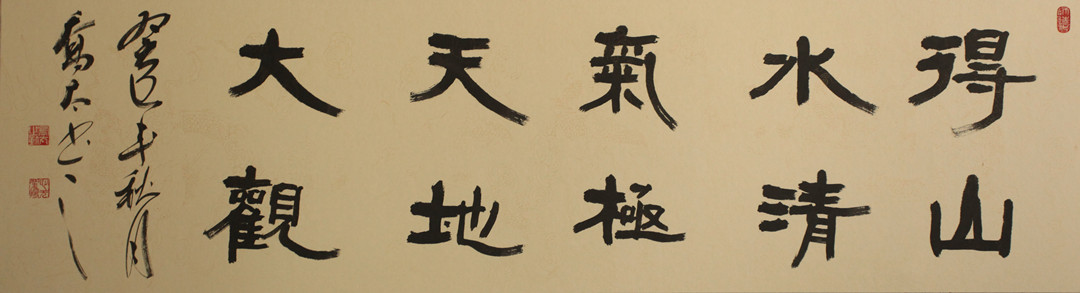 得山
水清
氣極
天地
大觀
癸巳年秋月